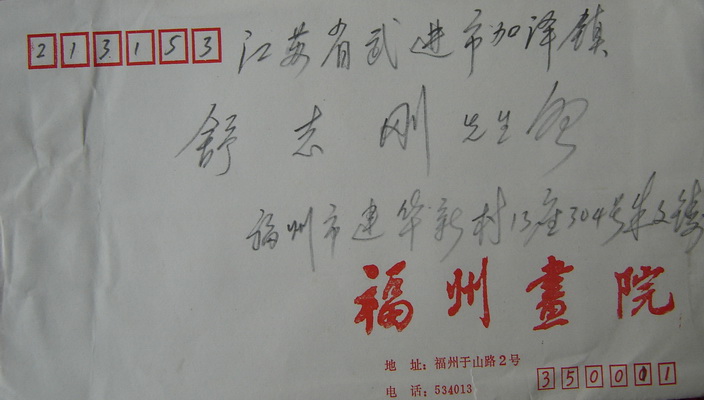 213153
江苏省武进市加泽镇
舒志刚先生启
福州市建华新村13座304号朱文铸
福州畫院
地 址：福州于山路2号
电 话：534013
350001